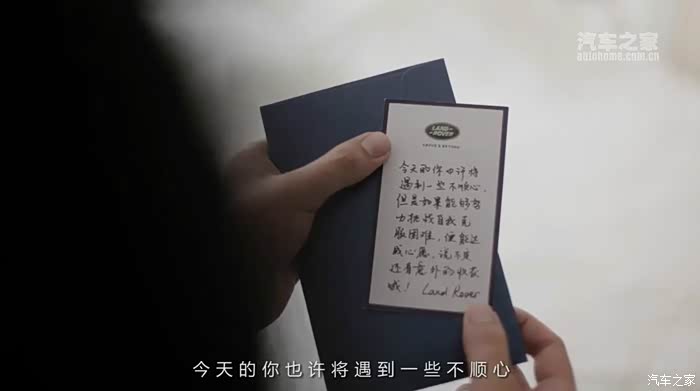 汽车之家
autohome.com.cn
LAND
ROVER
ABOVE & BEYOND
今天的你也许将
遇到一些不顺心，
但是如果能够努
力挑战自我克
服困难，便能达
成心愿，说不定
还有意外的收获
哦！ Land Rover
今天的你也许将遇到一些不顺心
汽车之家